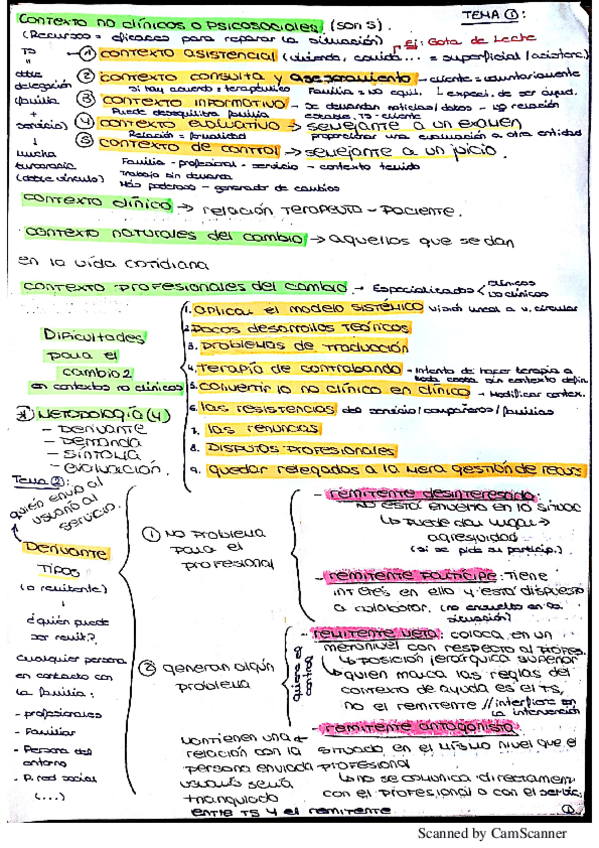 TEMA ①:
CONTEXTO NO CLÍNICOS O PSICOSOCIALES (SON 5).
(Recursos = eficaces para reparar la situación)
Ej: Gota de Leche
① CONTEXTO ASISTENCIAL (vivienda, comida... = superficial/asistenc.)
② CONTEXTO CONSULTA Y ASESORAMIENTO - cliente = voluntariamente
si hay acuerdo = terapéutico
③ CONTEXTO INFORMATIVO - se demandan noticias/datos - relación
Puede desequilibra familia
TS - cliente
④ CONTEXTO EVALUATIVO → SEMEJANTE A UN EXAMEN
Relación = formalidad
proporcionar una evaluación a otra entidad
⑤ CONTEXTO DE CONTROL → SEMEJANTE A UN JUICIO.
Familia - profesional - servicio - contexto temido
Trabajo sin demanda
Más poderoso - generador de cambios
TS
=
doble
delegación
(familia
+
servicio)
↓
mucha
burocracia
(doble vínculo)
CONTEXTO CLÍNICO → RELACIÓN TERAPEUTA - PACIENTE.
CONTEXTO NATURALES DEL CAMBIO → AQUELLOS QUE SE DAN
EN LA VIDA COTIDIANA
CONTEXTO PROFESIONALES DEL CAMBIO. → Especializados < clínicos
no clínicos
Dificultades
para el
cambio 2
en contextos no clínicos
1. APLICAR EL MODELO SISTÉMICO visión lineal a v. circular
2. POCOS DESARROLLOS TEÓRICOS
3. PROBLEMAS DE TRADUCCIÓN
4. TERAPIA DE CONTRABANDO - Intento de hacer terapia a
toda costa sin contexto defin.
5. CONVERTIR LO NO CLÍNICO EN CLÍNICO - Modificar contex.
6. LAS RESISTENCIAS del servicio/compañeros/familias
7. LAS RENUNCIAS
8. DISPUTAS PROFESIONALES
9. QUEDAR RELEGADOS A LA MERA GESTIÓN DE RECURS
METODOLOGÍA (4)
- DERIVANTE
- DEMANDA
- SÍNTOMA
- EVALUACIÓN.
TEMA ②:
quién envía al
usuario al
servicio.
DERIVANTE
TIPOS
(o remitente)
↓
¿quién puede
ser remit.?
Cualquier persona
en contacto con
la familia:
- profesionales
- Familiar
- Persona del
entorno
- P. red social
(...)
① NO PROBLEMA
PARA EL
PROFESIONAL
- REMITENTE DESINTERESADO:
NO ESTÁ ENVUELTO EN LA SITUAC
↳ PUEDE DAR LUGAR →
AGRESIVIDAD
(si se pide su particip.)
- REMITENTE PARTÍCIPE: TIENE
INTERÉS EN ELLO Y ESTÁ DISPUESTO
A COLABORAR. (no envuelto en la
situación)
② GENERAN ALGÚN
PROBLEMA
quiere el
control
- REMITENTE META: COLOCA EN UN
METANIVEL CON RESPECTO AL PROFES.
↳ POSICIÓN JERÁRQUICA SUPERIOR
↳ QUIEN MARCA LAS REGLAS DEL
CONTEXTO DE AYUDA ES EL TS,
NO EL REMITENTE // interfiere en
la intervención
- REMITENTE ANTAGONISTA:
SITUADO EN EL MISMO NIVEL QUE EL
PROFESIONAL
↳ NO SE COMUNICA DIRECTAMEN
CON EL PROFESIONAL O CON EL SERVIC.
MANTIENEN UNA
RELACIÓN CON LA
PERSONA ENVIADA
USUARIO SERÁ
TRIANGULADO
ENTRE TS Y EL REMITENTE.
①
Scanned by CamScanner